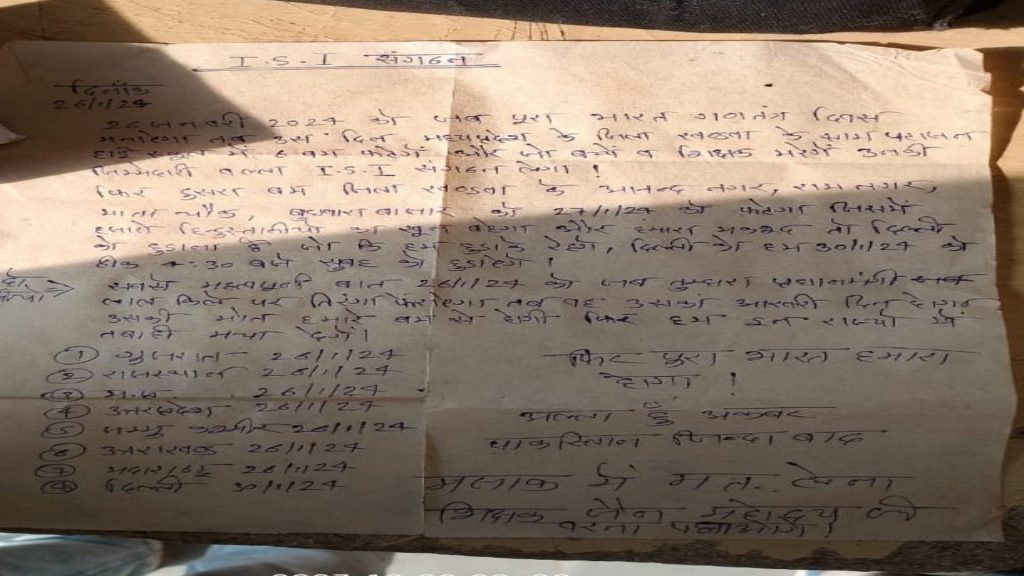 I.S.I संगठन
दिनांक
26/1/24
26 जनवरी 2024 को जब पुरा भारत गणतंत्र दिवस
मनाऐगा तब उसी दिन मध्यप्रदेश के जिला खण्डवा के ग्राम
हाई स्कुल में 6 बम फटेगें और जो बच्चे व शिक्षक मरेगें उनकी
जिम्मेदारी I.S.I संगठन लेगा !
फिर दुसरा बम जिला खण्डवा के आनन्द नगर, राम नगर,
माता चौक, बुधवारा बाजार को 27/1/24 को फटेगा जिसमें
हिन्दुस्तानीयो का खून बहेगा और हमारा मकसद तो दिल्ली
को उड़ाना है जो कि हम उड़ाके रहेगें, दिल्ली को हम 30/1/24 को
ठीक 4:30 बजे सुबह को उड़ाएंगे !
सबसे महत्वपूर्ण बात 26/1/24 को जब तुम्हारा प्रधानमंत्री जब
लाल किले पर तिरंगा तब वह उसका आखरी दिन होगा
उसकी मौत हमारे बम से होगी फिर हम इन राज्यो में
तबाही मचा देगें।
① गुजरात 26/1/24
② राजस्थान 26/1/24
③ म.प्र 26/1/24
④ उत्तरप्रदेश 26/1/24
⑤ जम्मु कश्मीर 26/1/24
⑥ उत्तराखण्ड 26/1/24
⑦ 26/1/24
⑧ दिल्ली 30/1/24
फिर पुरा भारत हमारा
होगा !
अल्ला हुं अकबर
पाकिस्तान जिन्दा बाद
मजाक में मत लेना
शिक्षक जैन महोदय जी
वरना पछताओगे !